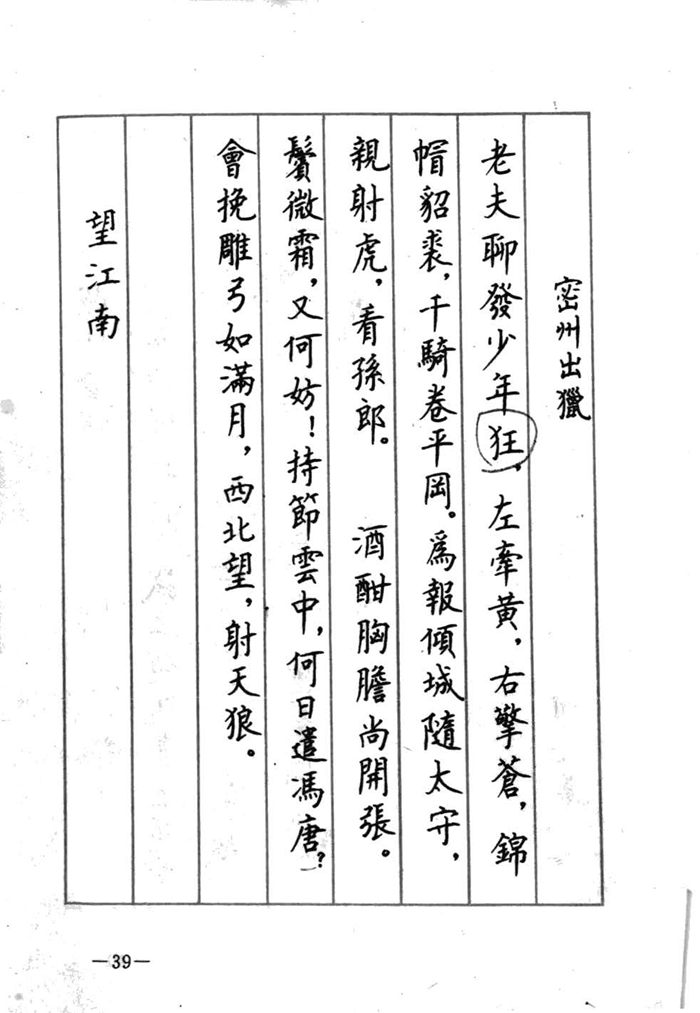 密州出獵
老夫聊發少年狂，左牽黃，右擎蒼，錦
帽貂裘，千騎卷平岡。爲報傾城隨太守，
親射虎，看孫郎。 酒酣胸膽尚開張。
鬢微霜，又何妨！持節雲中，何日遣馮唐？
會挽雕弓如滿月，西北望，射天狼。
望江南
—39—